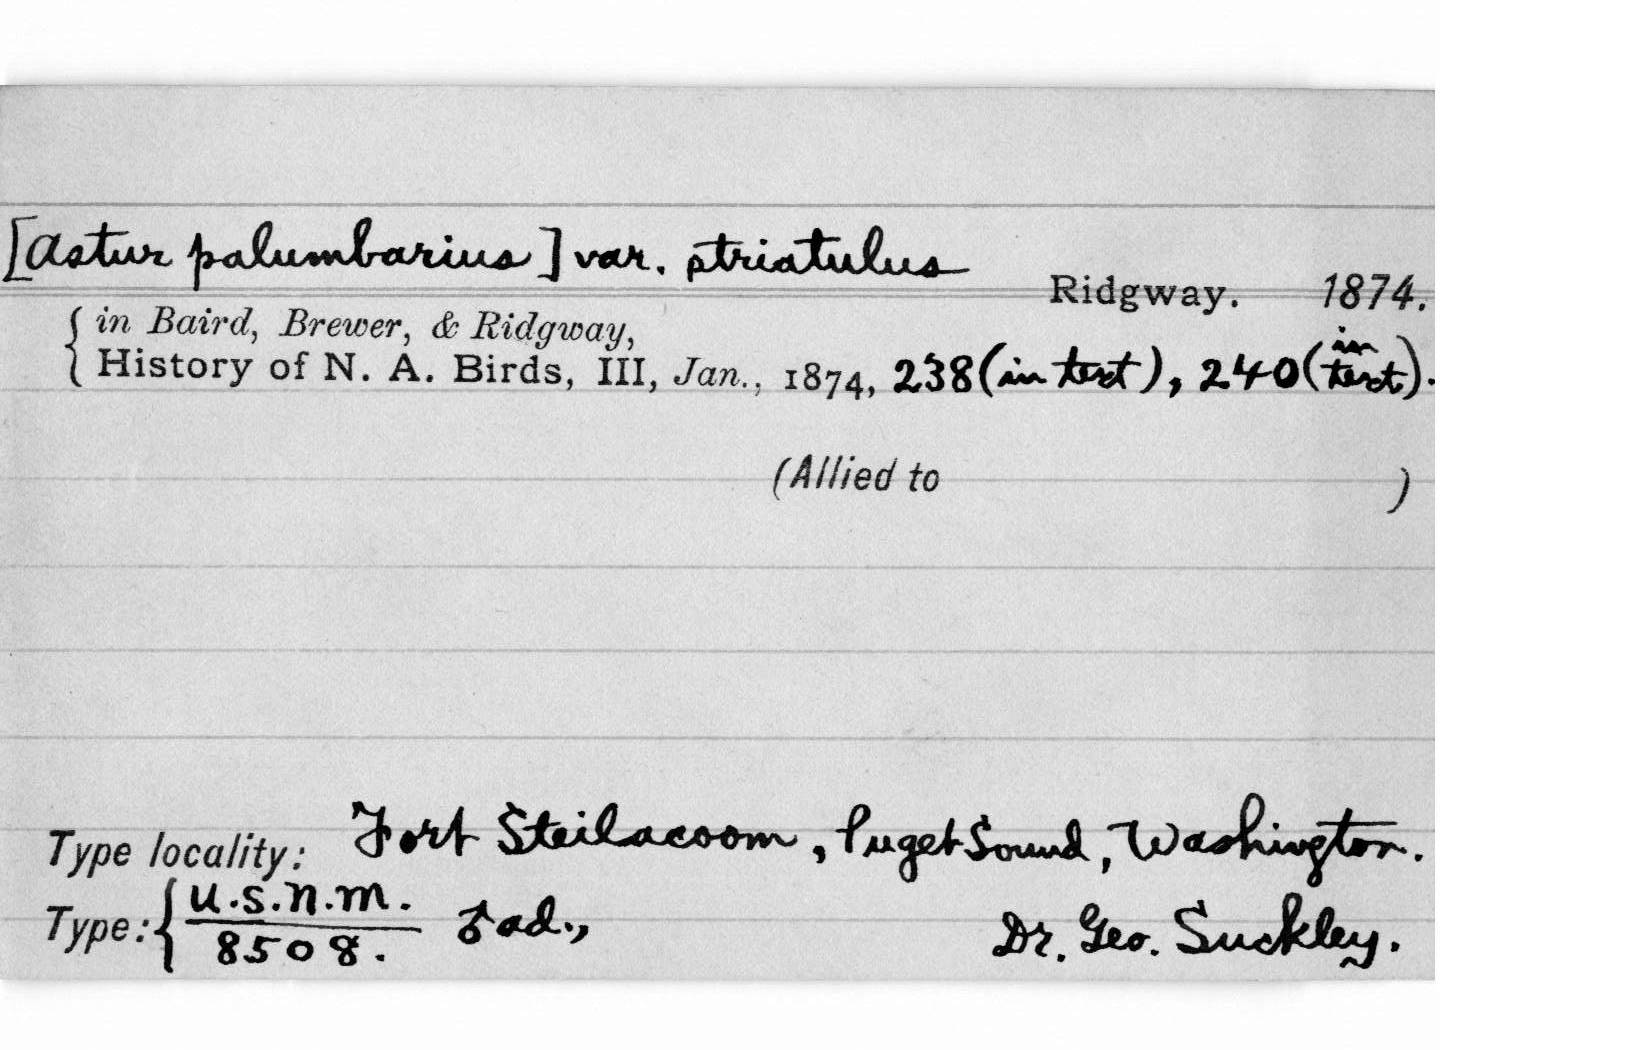 [Astur palumbarius] var. striatulus
Ridgway. 1874.
in Baird, Brewer, & Ridgway,
History of N. A. Birds, III, Jan., 1874, 238 (in text), 240 (in text).
(Allied to )
Type locality: Fort Steilacoom, Puget Sound, Washington.
Type: { U.S.N.M. ♂ ad., Dr. Geo. Suckley.
8508.